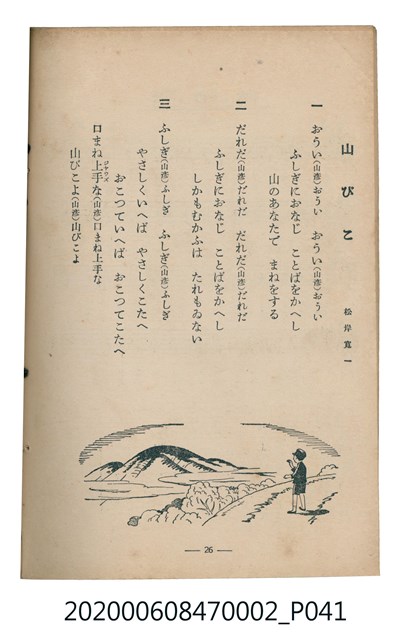 山びこ
松岸寛一
一 おうい(山彦)おうい おうい(山彦)おうい
ふしぎにおなじ ことばをかへし
山のあなたで まねをする
二 だれだ(山彦)だれだ だれだ(山彦)だれだ
ふしぎにおなじ ことばをかへし
しかもむかふは たれもゐない
三 ふしぎ(山彦)ふしぎ ふしぎ(山彦)ふしぎ
やさしくいへば やさしくこたへ
おこつていへば おこつてこたへ
口まね上手な(山彦)口まね上手な
ジヤウズ
山びこよ(山彦)山びこよ
— 26 —
202000608470002_P041